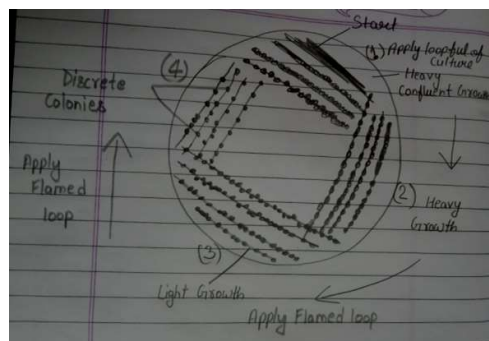 Start
(1) Apply loopful of
culture
Heavy
Confluent Growth
(4)
Discrete
Colonies
Apply
Flamed
loop
(2)
Heavy
Growth
(3)
Light Growth
Apply Flamed loop